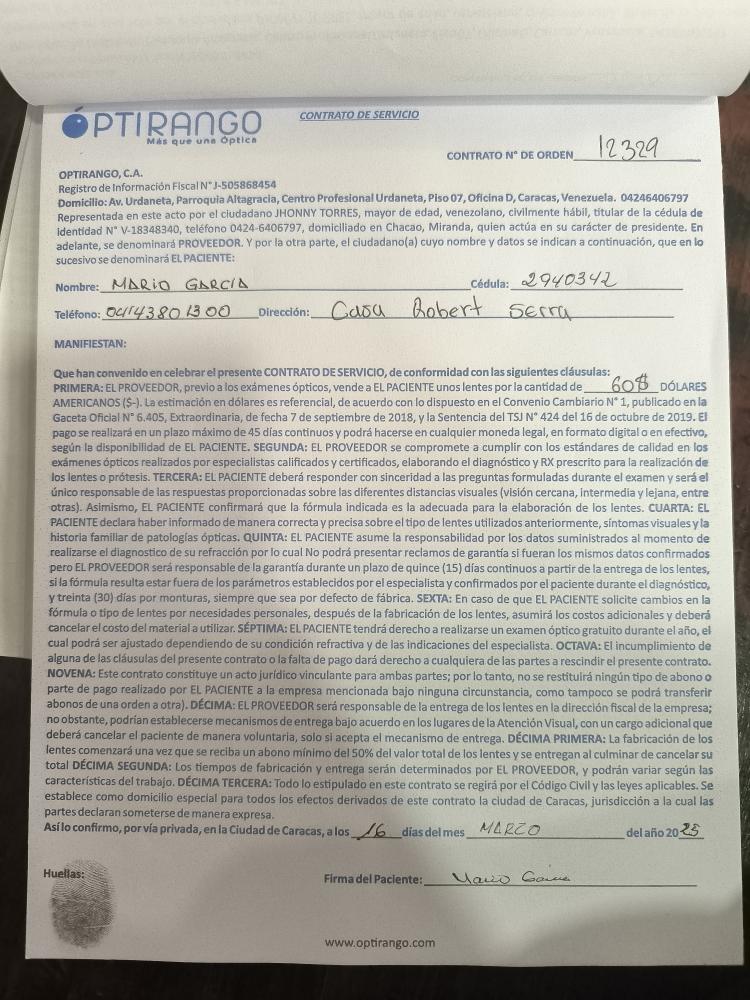 ÓPTIRANGO
Más que una Óptica
CONTRATO DE SERVICIO
CONTRATO N° DE ORDEN 12329
OPTIRANGO, C.A.
Registro de Información Fiscal N° J-505868454
Domicilio: Av. Urdaneta, Parroquia Altagracia, Centro Profesional Urdaneta, Piso 07, Oficina D, Caracas, Venezuela. 04246406797
Representada en este acto por el ciudadano JHONNY TORRES, mayor de edad, venezolano, civilmente hábil, titular de la cédula de
identidad N° V-18348340, teléfono 0424-6406797, domiciliado en Chacao, Miranda, quien actúa en su carácter de presidente. En
adelante, se denominará PROVEEDOR. Y por la otra parte, el ciudadano(a) cuyo nombre y datos se indican a continuación, que en lo
sucesivo se denominará EL PACIENTE:
Nombre: MARIO GARCIA Cédula: 2940342
Teléfono: 04143801300 Dirección: Casa Robert Serra
MANIFIESTAN:
Que han convenido en celebrar el presente CONTRATO DE SERVICIO, de conformidad con las siguientes cláusulas:
PRIMERA: EL PROVEEDOR, previo a los exámenes ópticos, vende a EL PACIENTE unos lentes por la cantidad de 60$ DÓLARES
AMERICANOS ($-). La estimación en dólares es referencial, de acuerdo con lo dispuesto en el Convenio Cambiario N° 1, publicado en la
Gaceta Oficial N° 6.405, Extraordinaria, de fecha 7 de septiembre de 2018, y la Sentencia del TSJ N° 424 del 16 de octubre de 2019. El
pago se realizará en un plazo máximo de 45 días continuos y podrá hacerse en cualquier moneda legal, en formato digital o en efectivo,
según la disponibilidad de EL PACIENTE. SEGUNDA: EL PROVEEDOR se compromete a cumplir con los estándares de calidad en los
exámenes ópticos realizados por especialistas calificados y certificados, elaborando el diagnóstico y RX prescrito para la realización de
los lentes o prótesis. TERCERA: EL PACIENTE deberá responder con sinceridad a las preguntas formuladas durante el examen y será el
único responsable de las respuestas proporcionadas sobre las diferentes distancias visuales (visión cercana, intermedia y lejana, entre
otras). Asimismo, EL PACIENTE confirmará que la fórmula indicada es la adecuada para la elaboración de los lentes. CUARTA: EL
PACIENTE declara haber informado de manera correcta y precisa sobre el tipo de lentes utilizados anteriormente, síntomas visuales y la
historia familiar de patologías ópticas. QUINTA: EL PACIENTE asume la responsabilidad por los datos suministrados al momento de
realizarse el diagnostico de su refracción por lo cual No podrá presentar reclamos de garantía si fueran los mismos datos confirmados
pero EL PROVEEDOR será responsable de la garantía durante un plazo de quince (15) días continuos a partir de la entrega de los lentes,
si la fórmula resulta estar fuera de los parámetros establecidos por el especialista y confirmados por el paciente durante el diagnóstico,
y treinta (30) días por monturas, siempre que sea por defecto de fábrica. SEXTA: En caso de que EL PACIENTE solicite cambios en la
fórmula o tipo de lentes por necesidades personales, después de la fabricación de los lentes, asumirá los costos adicionales y deberá
cancelar el costo del material a utilizar. SÉPTIMA: EL PACIENTE tendrá derecho a realizarse un examen óptico gratuito durante el año, el
cual podrá ser ajustado dependiendo de su condición refractiva y de las indicaciones del especialista. OCTAVA: El incumplimiento de
alguna de las cláusulas del presente contrato o la falta de pago dará derecho a cualquiera de las partes a rescindir el presente contrato.
NOVENA: Este contrato constituye un acto jurídico vinculante para ambas partes; por lo tanto, no se restituirá ningún tipo de abono o
parte de pago realizado por EL PACIENTE a la empresa mencionada bajo ninguna circunstancia, como tampoco se podrá transferir
abonos de una orden a otra). DÉCIMA: EL PROVEEDOR será responsable de la entrega de los lentes en la dirección fiscal de la empresa;
no obstante, podrían establecerse mecanismos de entrega bajo acuerdo en los lugares de la Atención Visual, con un cargo adicional que
deberá cancelar el paciente de manera voluntaria, solo si acepta el mecanismo de entrega. DÉCIMA PRIMERA: La fabricación de los
lentes comenzará una vez que se reciba un abono mínimo del 50% del valor total de los lentes y se entregan al culminar de cancelar su
total DÉCIMA SEGUNDA: Los tiempos de fabricación y entrega serán determinados por EL PROVEEDOR, y podrán variar según las
características del trabajo. DÉCIMA TERCERA: Todo lo estipulado en este contrato se regirá por el Código Civil y las leyes aplicables. Se
establece como domicilio especial para todos los efectos derivados de este contrato la ciudad de Caracas, jurisdicción a la cual las
partes declaran someterse de manera expresa.
Así lo confirmo, por vía privada, en la Ciudad de Caracas, a los 16 días del mes MARZO del año 2025
Huellas:
Firma del Paciente: Mario Garcia
www.optirango.com